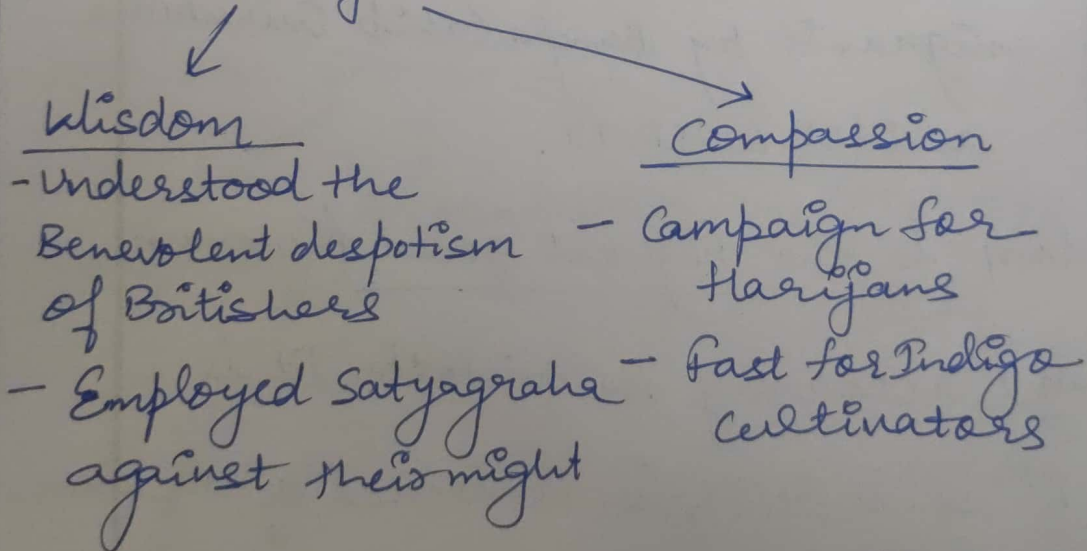 Wisdom
- Understood the
Benevolent despotism
of Britishers
- Employed Satyagraha
against their might
Compassion
- Campaign for
Harijans
- Fast for Indigo
cultivators